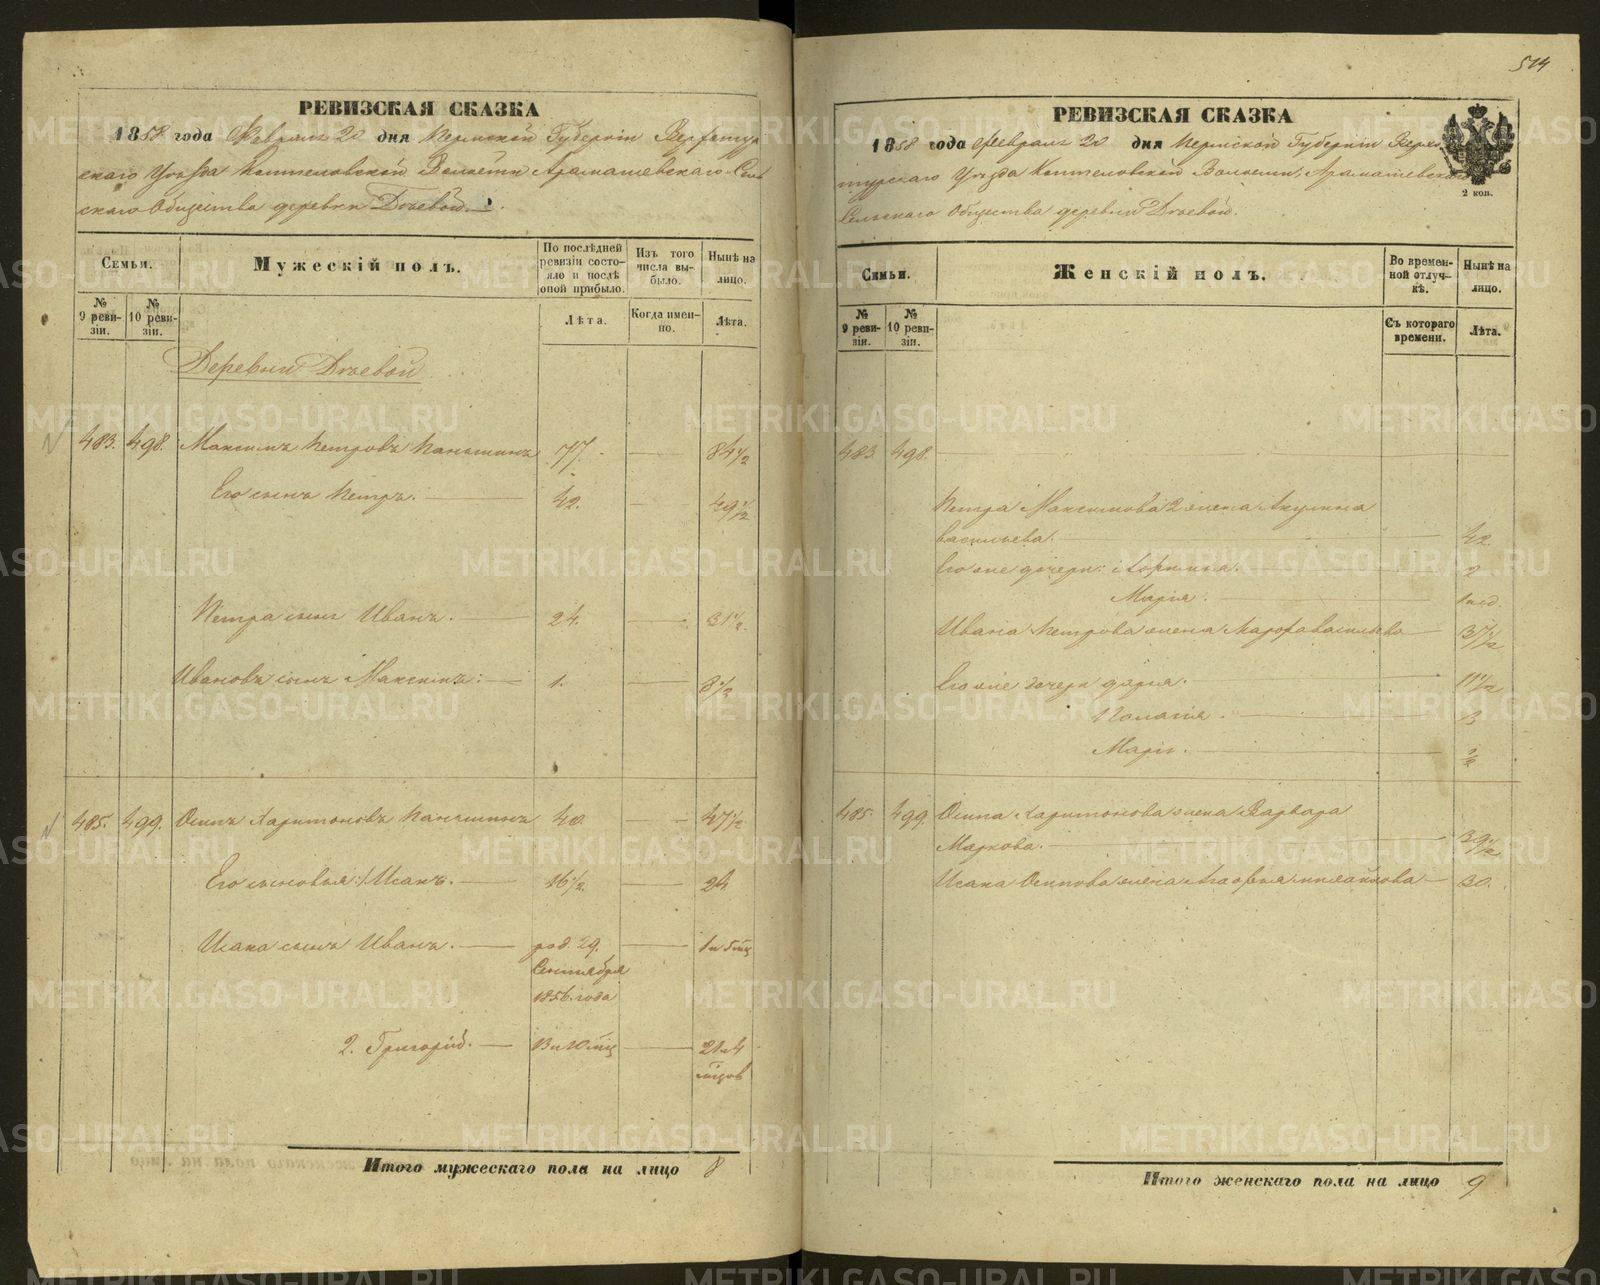 РЕВИЗСКАЯ СКАЗКА
1858 года Февраля 20 дня Пермской Губерніи Верхотур
скаго Уѣзда Коптеловской Волости Арамашевскаго Сель
скаго Общества деревни Дѣевой.
Семьи.
Мужескій полъ.
По послѣдней ревизіи состояло и послѣ оной прибыло.
Изъ того числа выбыло.
Нынѣ на лицо.
№ 9 ревизіи.
№ 10 ревизіи.
Лѣта.
Когда именно.
Лѣта.
Деревни Дѣевой
483. 498. Максимъ Петровъ Паньшинъ 77. 84½
Его сынъ Петръ. 42. 49½
Петра сынъ Иванъ. 24. 31½
Ивановъ сынъ Максимъ: 1. 8½
485. 499. Осипъ Харитоновъ Паньшинъ 40. 47½
Его сыновья: 1 Исакъ. 16½. 24
Исака сынъ Иванъ. род. 29. 1 и 5 мѣц
Сентября
1856 года
2. Григорій. 13 и 10 мѣц 21 и 4
мѣцов
Итого мужескаго пола на лицо 8
514
РЕВИЗСКАЯ СКАЗКА
1858 года Февраля 20 дня Пермской Губерніи Верхо
турскаго Уѣзда Коптеловской Волости, Арамашевскаго
Сельскаго Общества деревни Дѣевой.
2 коп.
Семьи.
Женскій полъ.
Во временной отлучкѣ.
Нынѣ на лицо.
№ 9 ревизіи.
№ 10 ревизіи.
Съ котораго времени.
Лѣта.
483. 498.
Петра Максимова 2 жена Акулина
Васильева. 42.
Его же дочери: 2
Марія. 1 нед.
Ивана Петрова жена Марфа Васильева 37½
Его же дочери Дарья. 11½
Палагія. 3
Марія.
485. 499. Осипа Харитонова жена Варвара
Маркова. 39½
Исака Осипова жена Агафья Михайлова 30.
Итого женскаго пола на лицо 9
METRIKI.GASO-URAL.RU